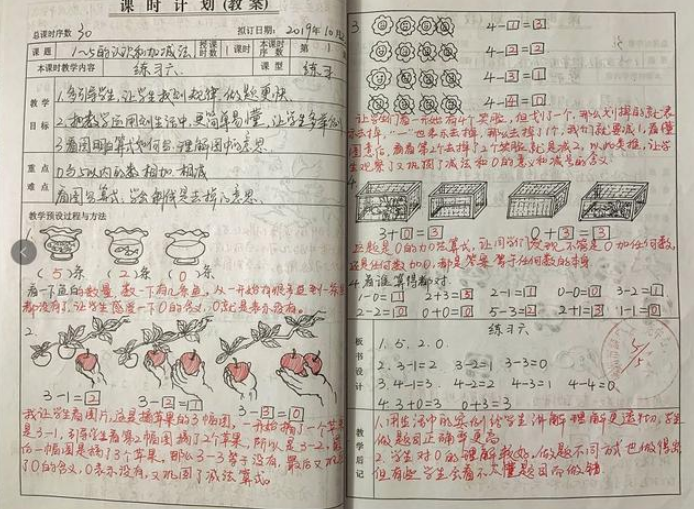 课 时 计 划(教案)
总课时序数 30 拟订日期: 2019年10月
课题 1~5的认识和加减法 授课时数 1课时 本课时序数 第 1
本课时教学内容 练习六 课 型 练习
教学目标
2.把数学运用到生活中,更简单易懂,让学生
重点难点
0与5以内的数相加相减
教学预设过程与方法
1.
(5)条 (2)条 (0)条
看一下鱼的数量,数一下有几条鱼,从一开始有很多逐到一条鱼
都没有了,让学生感受一下0的含义,0就是表示没有。
2.
3-1=2 3-2=1 3-3=0
我让学生看图片,这是摘苹果的3幅图,一开始摘了一个苹果
是3-1,引导学生看第2幅图摘了2个苹果,所以是3-2,最
后一幅图是摘了3个苹果,那么3-3等于没有,最后又巩
了0的含义,0表示没有,又巩固了减法算式。
3
4-1=3
4-2=2
4-3=1
4-4=0
让学生们看一开始有4个笑脸,但划了一个,那么划掉的就表
示去掉,"一"也表示去掉,那么去掉了1个,我们就要减1,看懂
图意后,再看第2个去掉了2个笑脸就是减2,以此类推,让学
生观察了又巩固了减法和0的意义和减号的含义
4.
3+0=3 0+3=3
这题是0的加法算式,让同学们发现,不管是0加任何数,
还是任何数加0,都是答案等于任何数的本身
4.看谁算得都对
1-0=1 2+3=5 2-1=1 0-0=0 3-2=1
2-2=0 0+0=0 5-3=2 2+1=3 1-1=0
板书设计
练习六
1. 5. 2. 0.
2. 3-1=2 3-2=1 3-3=0
3. 4-1=3 4-2=2 4-3=1 4-4=0
4. 3+0=3 0+3=3
教学后记
1.用生活中的案例给学生讲解理解更透彻,学生
做题目正确率更高
2.学生对0的理解较好,做题不同方式也做得出
但有些学生会看不懂题目而做错.